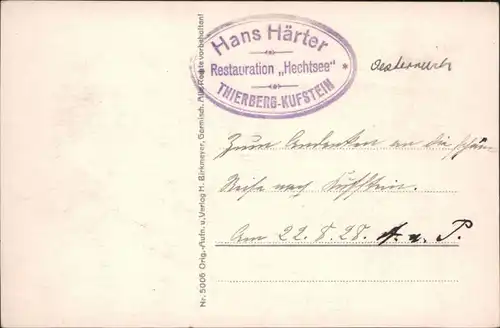 Hans Härter
Restauration „Hechtsee"
THIERBERG-KUFSTEIN
Oesterreich
Zum Andenken an die schön
Reise nach Kufstein.
Am 22.8.28. u. P.
Nr. 5006 Orig.-Aufn. u. Verlag H. Birkmeyer, Garmisch. Alle Rechte vorbehalten!